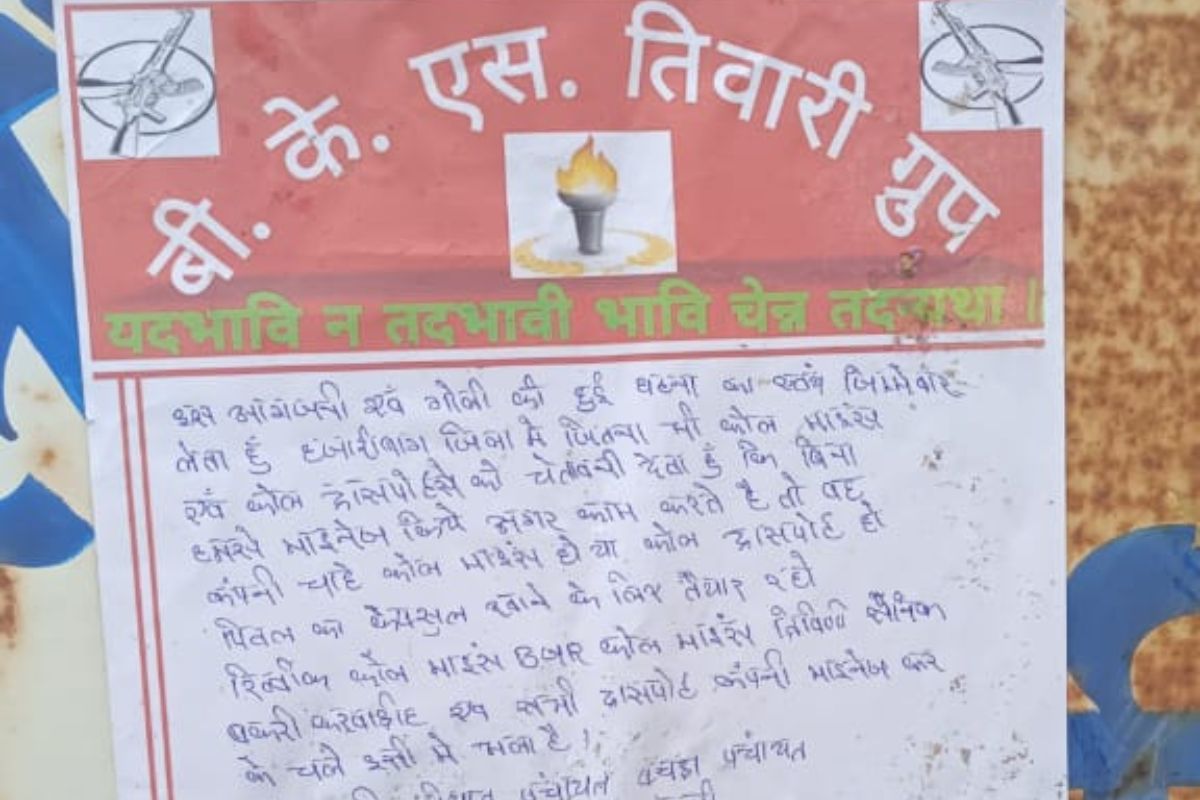 बी. के. एस. तिवारी ग्रुप
यदभावि न तदभावी भावि चेन्न तदन्यथा ।
इस आगजनी एवं गोली की हुई घटना का जिम्मेवार
लेता हुँ हजारीबाग जिला मे जितना भी कोल माइंस
एवं कोल ट्रासपोर्टर को चेतावनी देता हुं कि बिना
हमसे माइनेज किये अगर काम करते है तो वह
कंपनी चाहे कोल माइंस हो या कोल ट्रासपोर्ट हो
पितल का कैप्सुल खाने के लिए तैयार रहो
कोल माइंस BGR कोल माइंस त्रिवेणी सैनिक
एवं सभी ट्रासपोर्ट कंपनी माइनेज कर
के चले इसी मे भला है !
पंचायत पंचायत